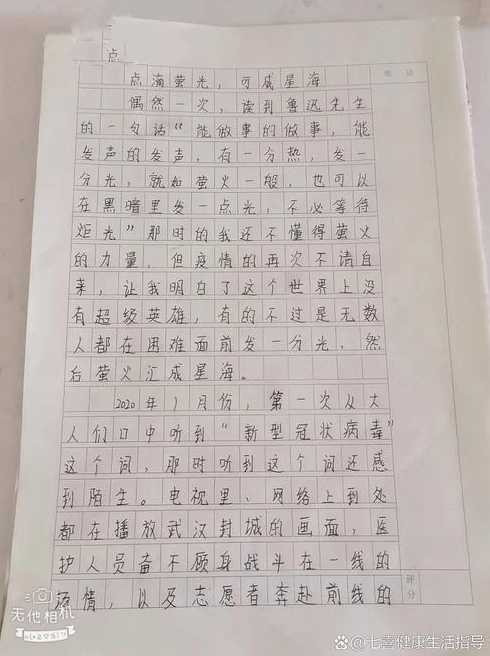 点
点滴萤光，可成星海
偶然一次，读到鲁迅先生
的一句话“能做事的做事，能
发声的发声，有一分热，发一
分光，就如萤火一般，也可以
在黑暗里发一点光，不必等待
炬光”那时的我还不懂得萤火
的力量，但疫情的再次不请自
来，让我明白了这个世界上没
有超级英雄，有的不过是无数
人都在困难面前发一分光，然
后萤火汇成星海。
2020年1月份，第一次从大
人们口中听到“新型冠状病毒”
这个词，那时听到这个词还感
到陌生。电视里、网络上到处
都在播放武汉封城的画面，医
护人员奋不顾身战斗在一线的
情，以及志愿者奔赴前线的
评分
无他相机
头条@七喜健康生活指导